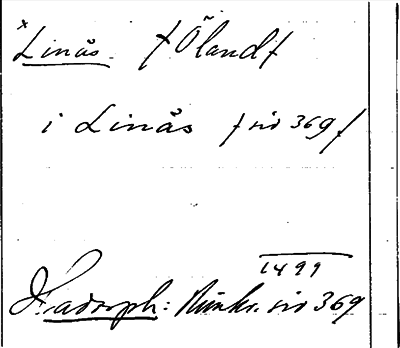 *Linås. /Öland/
i Linås /sid 369/
1499
Hadorph: Rimkr. sid 369